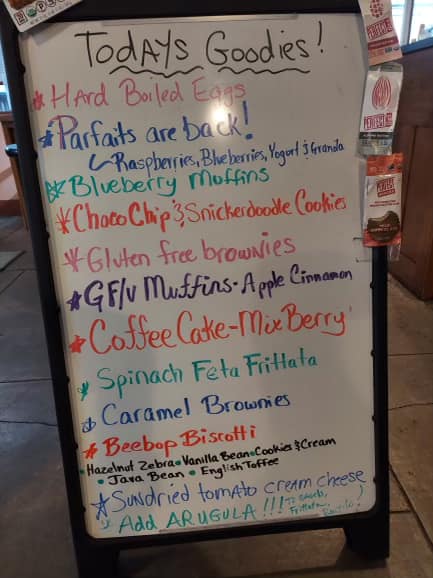 Todays Goodies!
Hard Boiled Eggs
Parfaits are back!
Raspberries, Blueberries, Yogurt & Granola
Blueberry Muffins
Choco Chip & Snickerdoodle Cookies
Gluten free brownies
GF/V Muffins - Apple Cinnamon
Coffee Cake - Mix Berry
Spinach Feta Frittata
Caramel Brownies
Beebop Biscotti
Hazelnut Zebra • Vanilla Bean • Cookies & Cream
• Java Bean • English Toffee
Sundried tomato cream cheese
Add ARUGULA !!!
Frittata